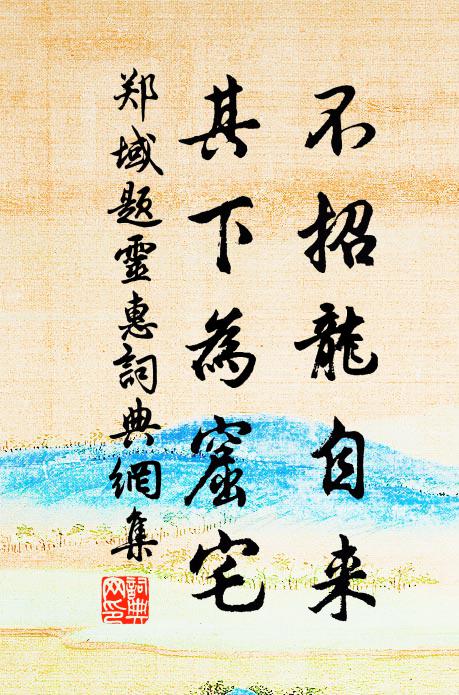 不招龍自来
其下為窟宅
郑域题靈惠詞典網集
詞典